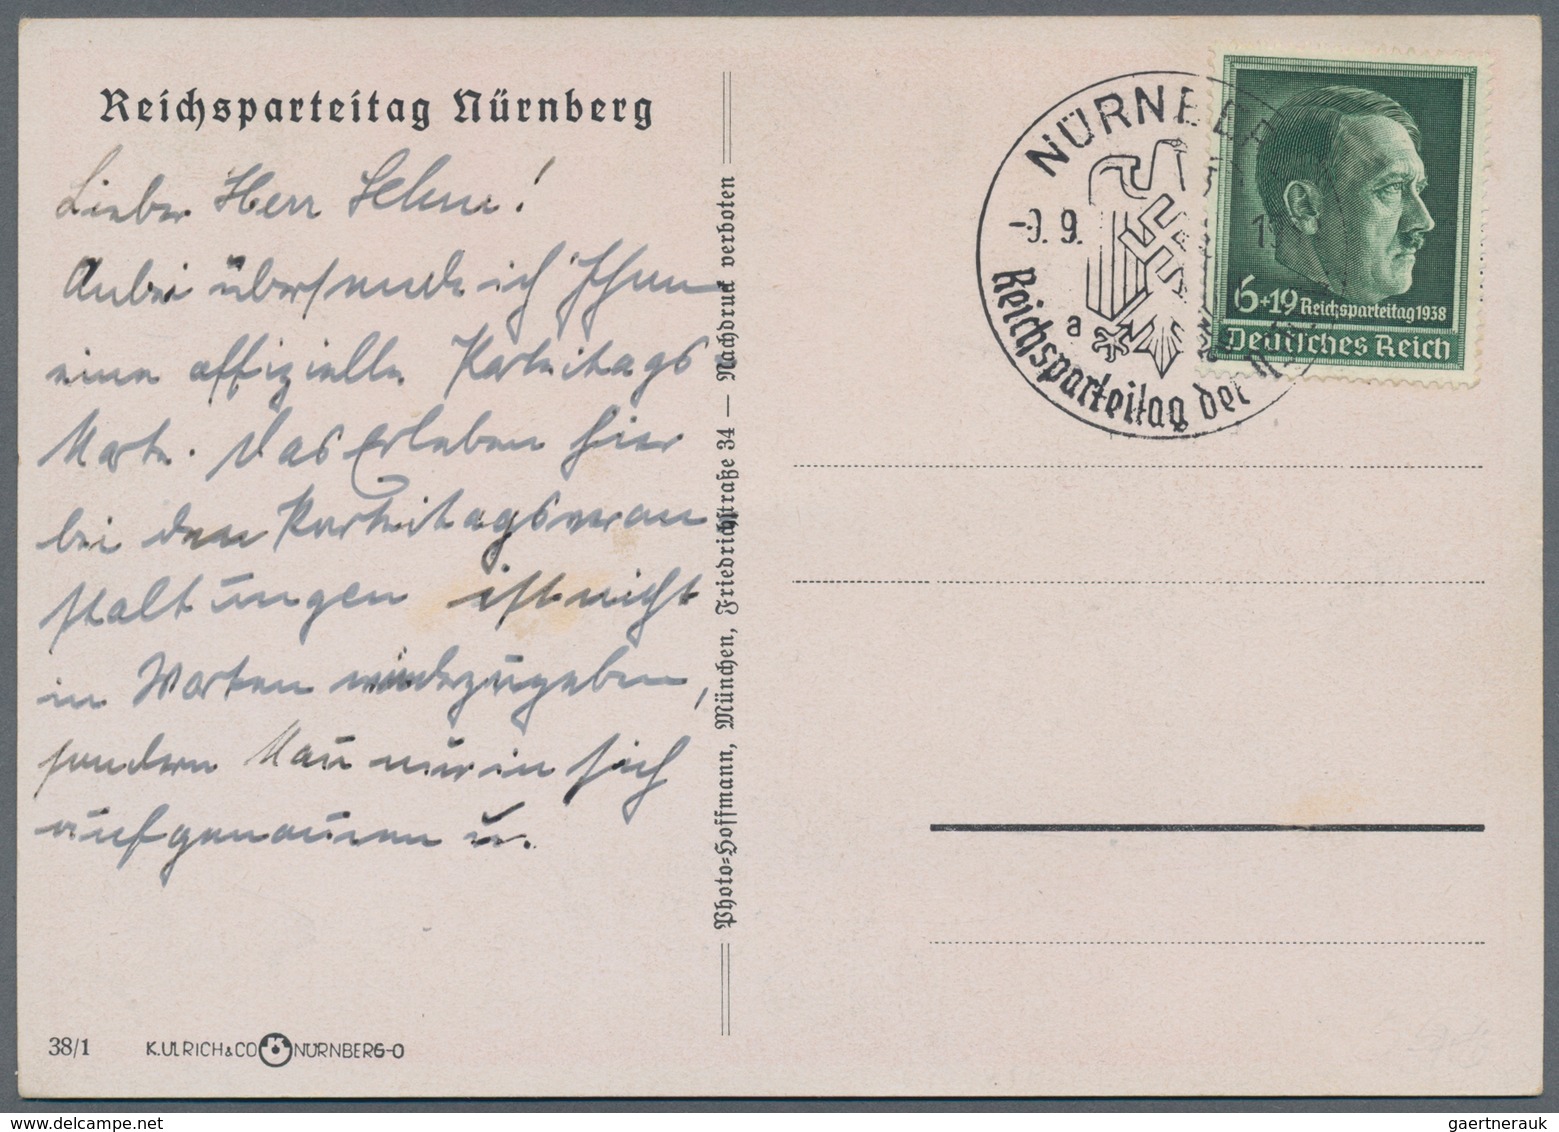 Reichsparteitag Nürnberg
Lieber Herr !
Anbei übersende ich Ihnen
eine offizielle Parteitags
Marke. Das Erleben hier
bei den Parteitagsveran
staltungen ist nicht
in Worten wiederzugeben,
sondern Man nur in sich
aufgenommen u.
38/1 K.ULRICH&CO NÜRNBERG-O
Photo-Hoffmann, München, Friedrichstraße 34 — Nachdruck verboten
NÜRNBER
-9. 9. 19
a
Reichsparteitag der
6+19 Reichsparteitag 1938
Deutsches Reich
gaertnerauk@delcampe.net